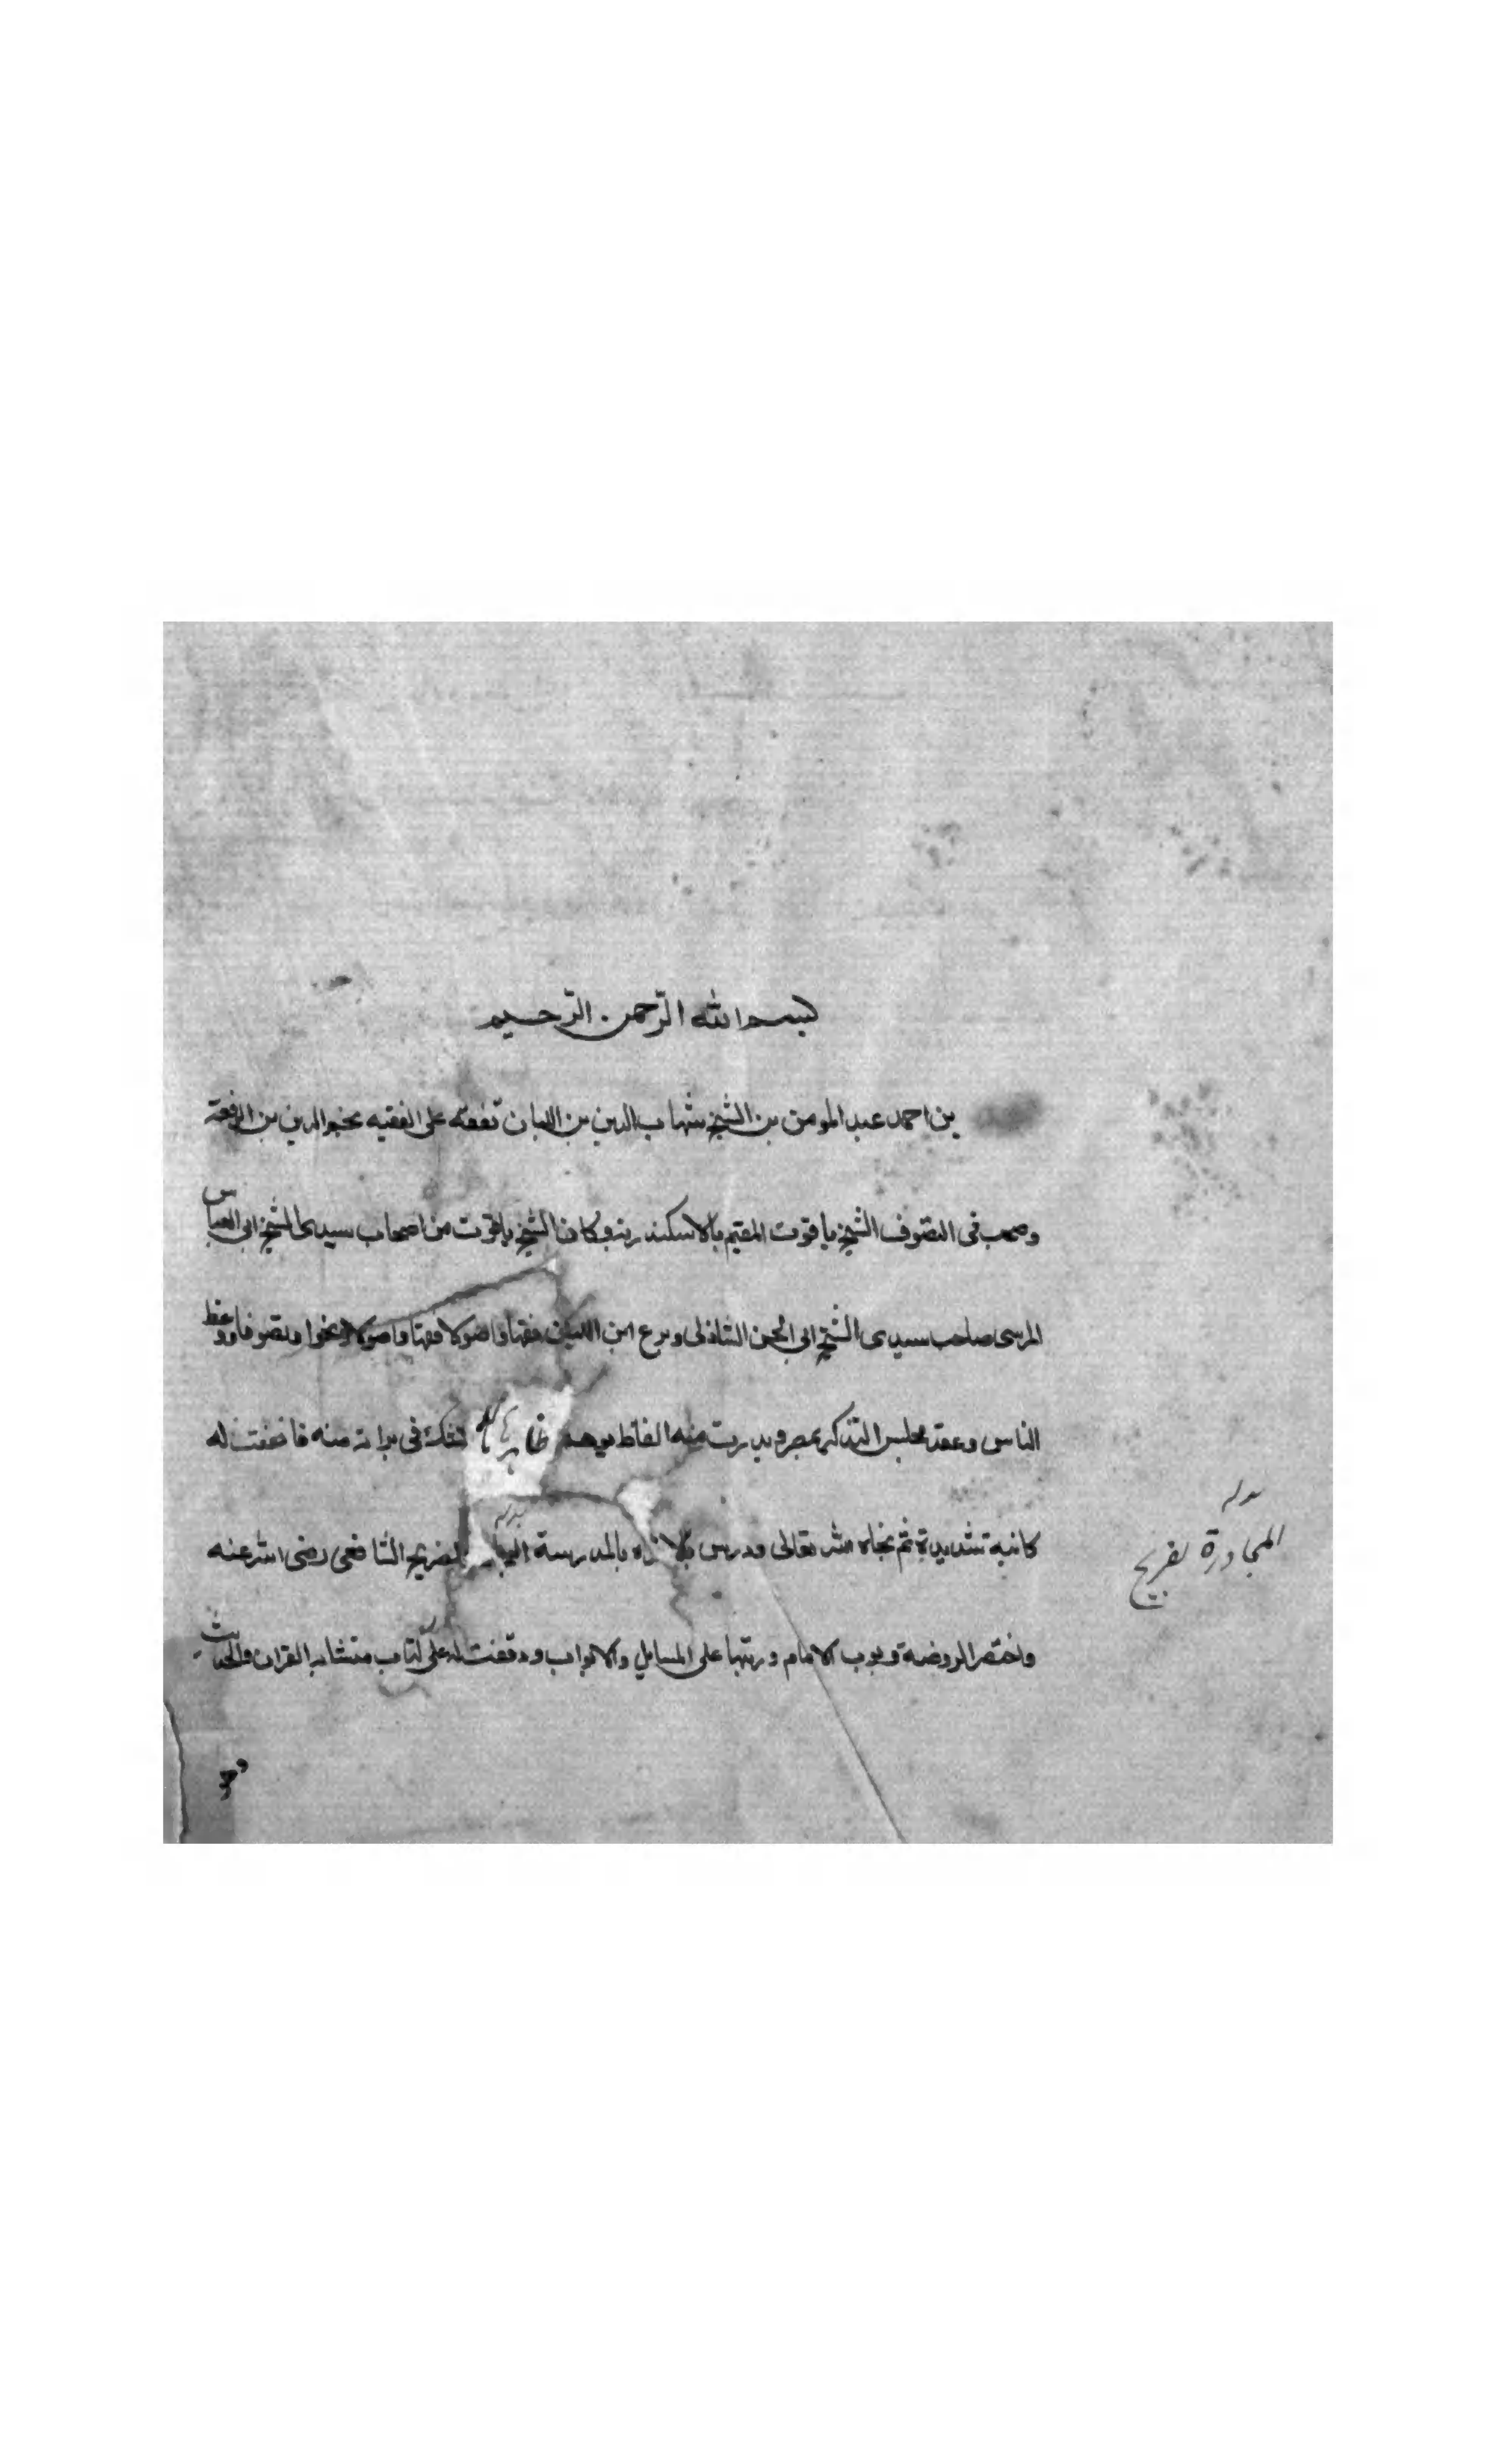 بسم الله الرّحمن الرّحيم
بن احمد عبد المومن بن الشيخ شهاب الدين بن اللبان تفقه على الفقيه نجم الدين بن الرفعة
وصحب فى التصوف الشيخ ياقوت المقيم بالاسكندرية وكان الشيخ ياقوت من اصحاب سيدى الشيخ ابى العباس
المرسى صاحب سيدى الشيخ ابى الحسن الشاذلى وبرع ابن اللبان فقها واصولا فقها واصولا ونحوا وتصوفا ووعظ
الناس وعقد مجلس التذكير بمصر وبدرت منه الفاظ يوهم ظاهرها فى براته منه فاتفقت له
كاينة شديدة ثم نجاه الله تعالى ودرس بالمدرسة لضريح الشافعى رضى الله عنه
بدله
المجاورة لضريح
واختصر الروضة وبوب الامام ورتبها على المسايل والابواب ووقفت له على كتاب متشابه القران والحديث